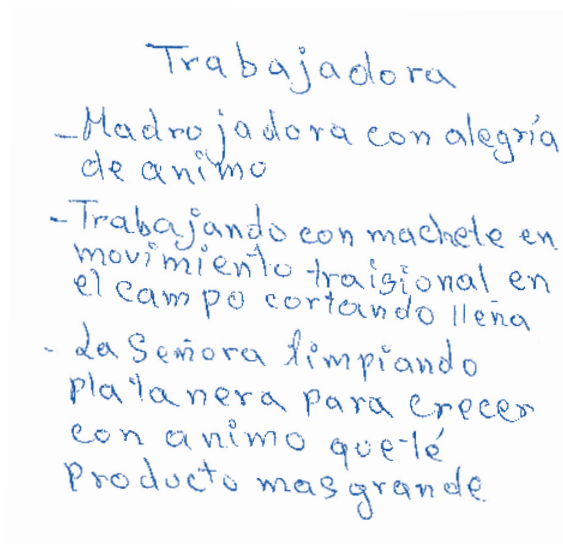 Trabajadora
- Madrojadora con alegría
de animo
- Trabajando con machete en
movimiento traisional en
el campo cortando lleña
- La Señora limpiando
platanera para crecer
con animo que té
producto mas grande